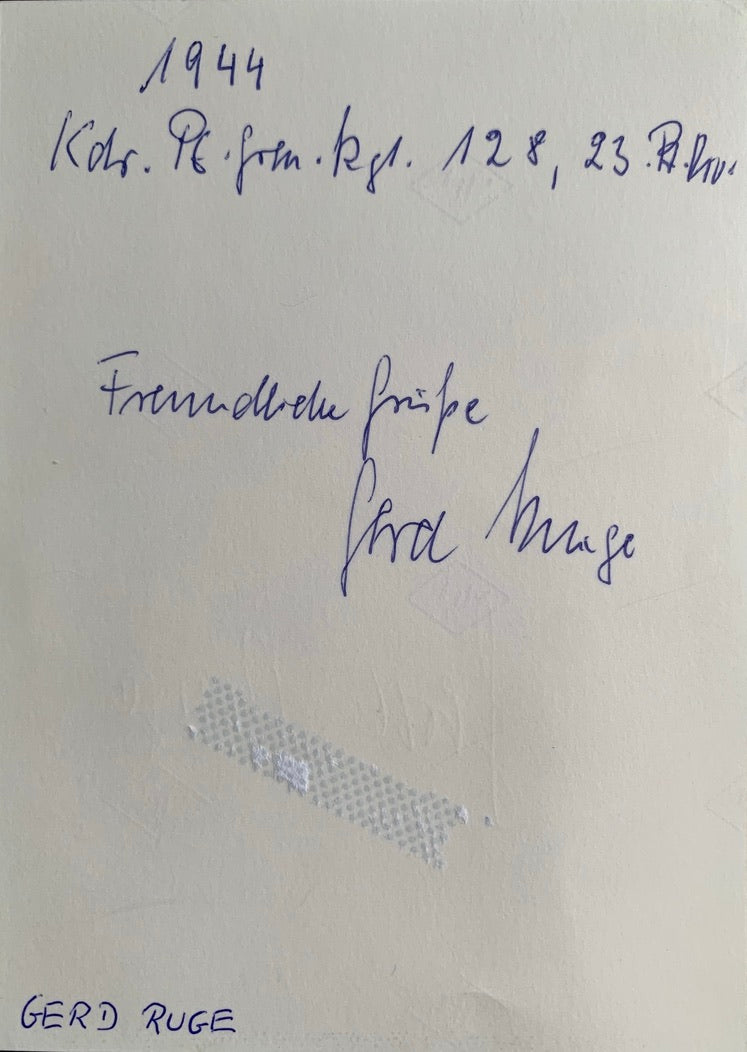 1944
Kdr. Pz.Gren.Rgt. 128, 23.Pz.Div.
Freundliche Grüße
Gerd Ruge
GERD RUGE